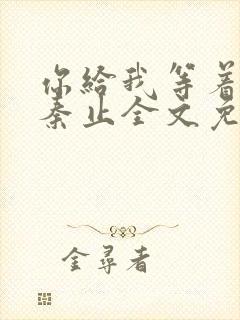 你給我等着
秦止全文免
金尋者